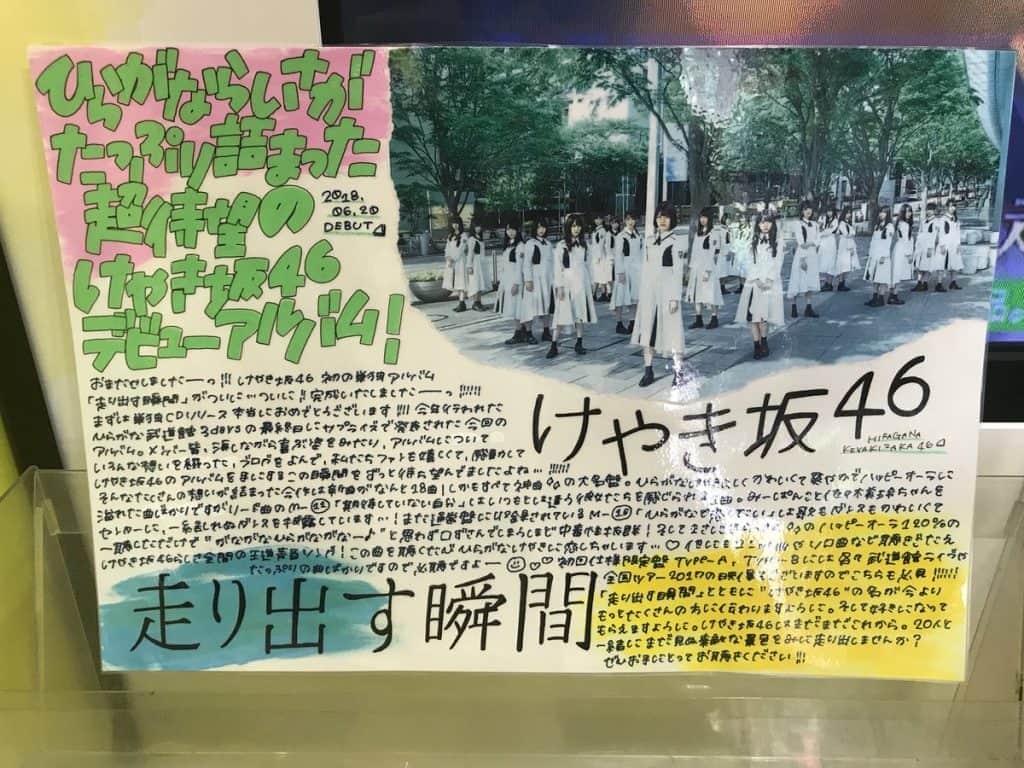 ひらがならしさが
たっぷり詰まった
超待望の
けやき坂46
デビューアルバム!
2018.
06.20
DEBUT
おまたせしましたーっ!!! けやき坂46 初の単独アルバム
「走り出す瞬間」がついに…ついに!! 完成いたしましたーーっ!!!!!
まずは単独CDリリース本当におめでとうございます!!!! 今年行われた
ひらがな武道館3daysの最終日にサプライズで発表された今回の
アルバム。メンバー皆、涙しながら喜ぶ姿をみたり、アルバムについて
いろんな想いを綴った、ブログをよんで、私たちファンも嬉しくて、
けやき坂46のアルバムを手にするこの瞬間をずっと待ち望んでましたよね…!!!!!
けやき坂46
HIRAGANA
KEYAKIZAKA46
そんなたくさんの想いが詰まった今作は新曲がなんと18曲!しかもすべて神曲
の大名盤。ひらがなけやきらしく かわいくて 爽やかで ハッピーオーラに
溢れた曲ばかりですがリード曲のM-「期待していない自分」はいつもとは違う彼女たちを感じられる1曲。みーぱんこと佐々木美玲ちゃんを
センターに、一糸乱れぬダンスを披露しています…! また通常盤にのみ収録されているM-「ひらがなで恋したい」は歌もダンスもかわいくて
一聴しただけで "がながなひらがなーよ" と思わず口ずさんでしまうほど中毒性抜群!
ハッピーオーラ120%の
けやき坂46らしさ全開の王道
この曲を聴くたび ひらがなけやきに恋しちゃいます…♡
ユニットやソロ曲など聴きごたえ
たっぷりの曲ばかりですので、必聴ですよー
初回仕様限定盤 TYPE-A, TYPE-Bには各々 武道館ライブや
全国ツアー2017の映像もございますのでこちらも必見!!!!!
「走り出す瞬間」とともに"けやき坂46"の名が今より
もっとたくさんの方に伝わりますように。そして好きになって
もらえますように。けやき坂46はまだまだこれから。20人と
一緒にまだ見ぬ素敵な景色をみに走り出しませんか?
ぜひお手にとってお聴きください!!!
走り出す瞬間